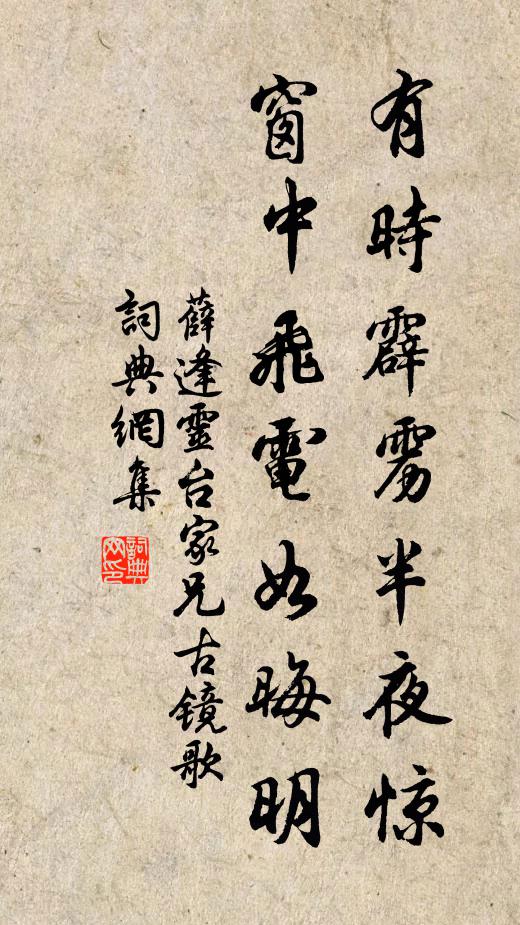 有時霹雳半夜惊
窗中飛電如晦明
薛逢靈台家兄古镜歌
詞典網集
詞典
网印